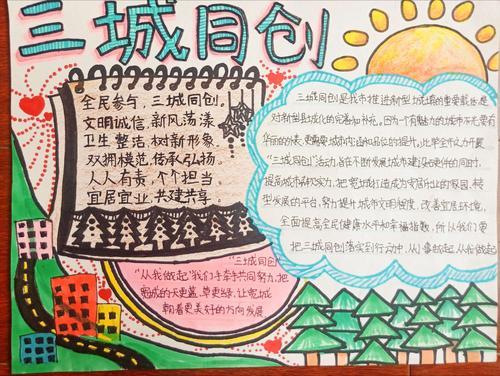 三城同创
全民参与，三城同创。
文明诚信，新风荡漾
卫生整洁，树新形象
双拥模范，传承弘扬
人人有责，个个担当
宜居宜业，共建共享
三城同创是我市推进新型城镇的重要载体，是
对新型县城化的完善和补充，因为一个有魅力的城市不光要有
华丽的外表，更需要城市生活和品位的提升，比举全市之力开展
"三城同创"活动，旨在不断发展城市建设硬件的同时，
提高城市品和实力，把 城我们打造成为宜居所止的家园，转
型发展的平台，努力提升城市文明程度，改善宜居环境，
全面提高全民健康水平和幸福指数，所以从我们要
把三城同创落实到行动中，从小事做起，从我做起
"三城同创
"从我做起"我们手牵手共同努力，把
城的天更蓝，草更绿，让 城
朝着更美好的方向发展